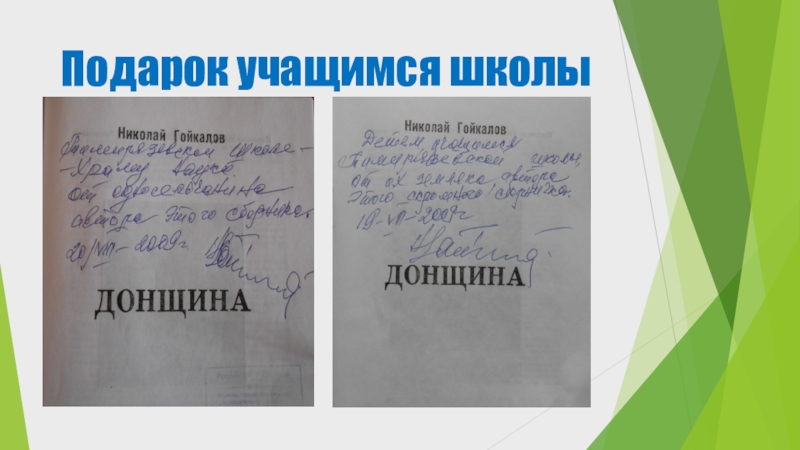 Подарок учащимся школы
Николай Гойкалов
Тимирязевской школе –
– Храму науки
от односельчанина
автора этого сборника
20/VIII – 2009г.
ДОНЩИНА
Николай Гойкалов
Детям, учащимся
Тимирязевской школы,
от их земляка автора
этого скромного сборника.
19 – VII – 2009г
ДОНЩИНА